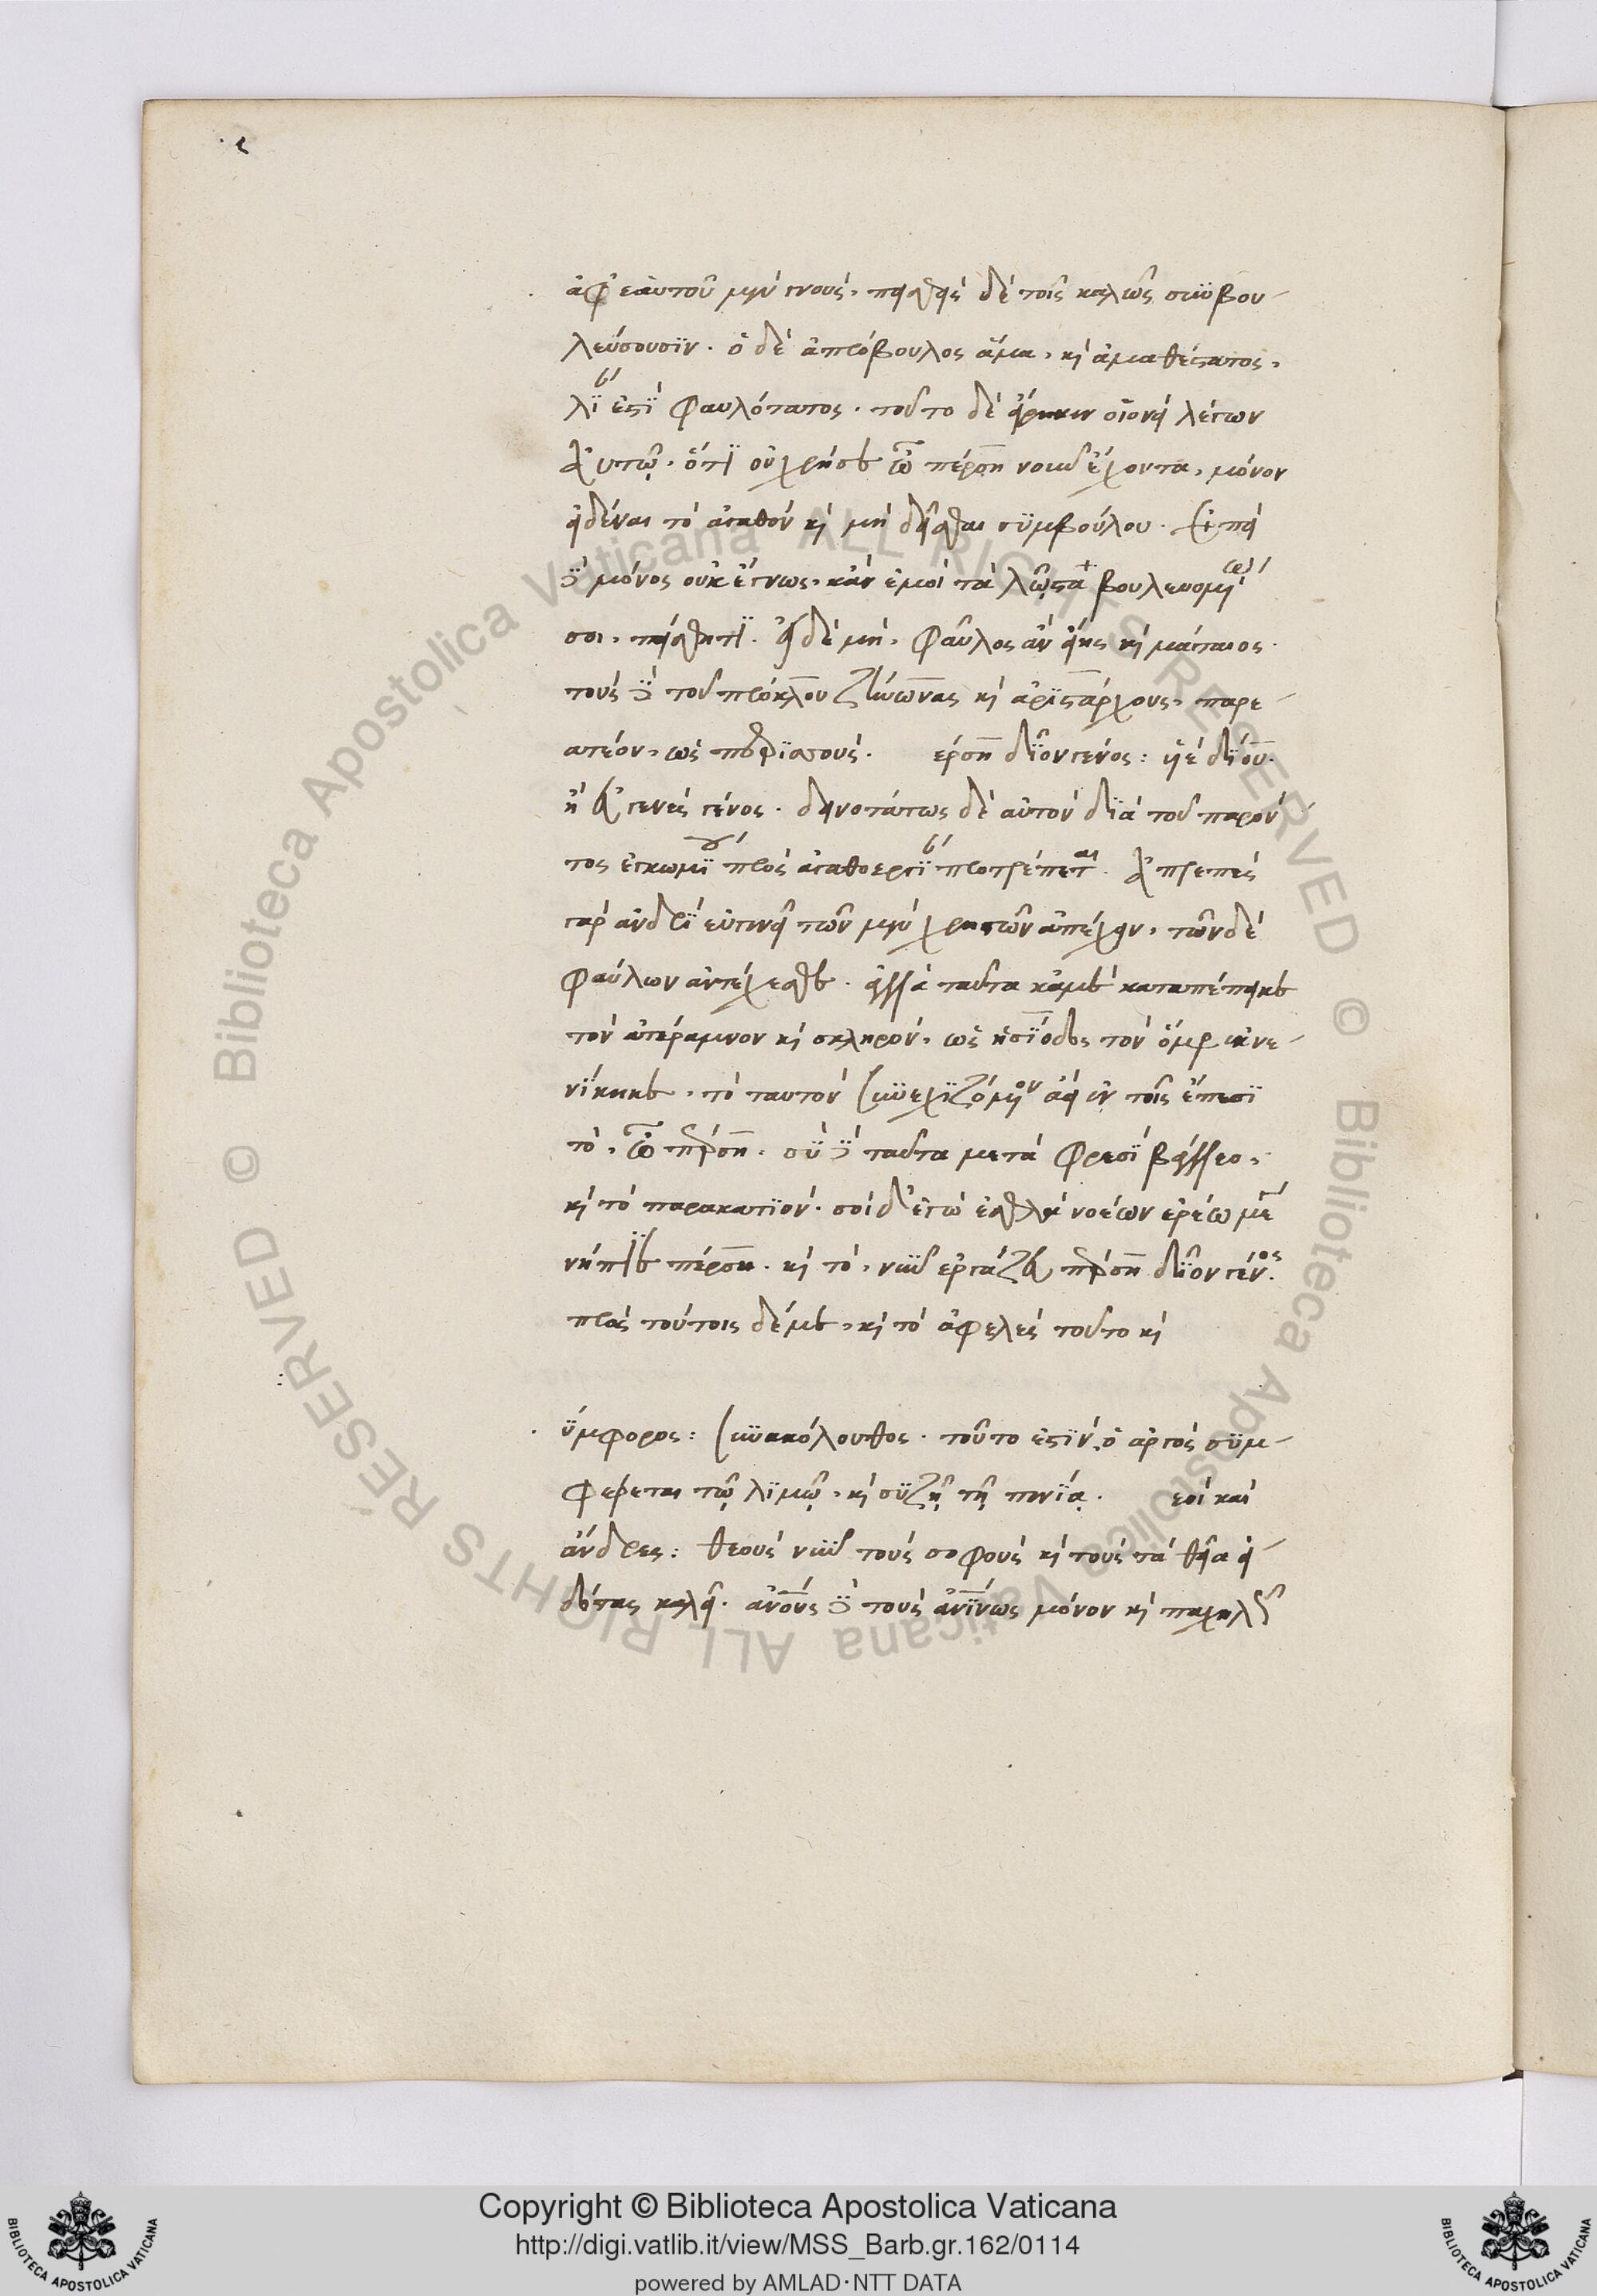 ἀφ' ἑαυτοῦ μὴν γνοὺς, πεισθεὶς δὲ τοῖς καλῶς συμβου-
λεύσουσϊν. ὁ δὲ ἀπρόβουλος ἅμα, καὶ ἀμαθέστατος,
φαυλότατος. τοῦτο δὲ εἴρηκεν οἱονεὶ λέγων
αὐτῷ. ὅτϊ οὐ χρή σε ὦ πέρση νοῦν ἔχοντα, μόνον
εἰδέναι τὸ ἀγαθὸν καὶ μὴ δεῖσθαι συμβούλου. ἐπεὶ
δὲ μόνος οὐκ ἔγνως, κἂν ἐμοὶ τὰ λῷστα βουλευομένῳ
σοι, πείσθητϊ. εἰ δὲ μὴ, φαῦλος ἂν εἴης καὶ μάταιος.
τοὺς δὲ τοῦ πρόκλου ζήνωνας καὶ ἀρϊστάρχους, παρε-
ατέον, ὡς
έρση δῖον γένος: ἤγε δίου.
ἢ εὐγενὲς γένος. δεινοτάτως δὲ αὐτὸν δϊὰ τοῦ παρόν-
τος ἐγκωμίου πρὸς ἀγαθοεργίαν προτρέπεται. ἀπρεπὲς
γὰρ ἀνδρϊ εὐγενεῖ τῶν μὴν χρηστῶν ἀπέχειν, τῶν δὲ
φαύλων ἀντέχεσθαι. ἀλλὰ ταῦτα κἀμὲ καταπέπεικε
τὸν ἀτέραμνον καὶ σκληρὸν, ὡς ἡσϊοδος τὸν ὅμηρον νε-
νίκηκε, τὸ ταυτὸν συνεχϊζόμενον ἀεὶ ἐν τοῖς ἔπεσϊ
τὸ, ὦ πέρση. σὺ δὲ ταῦτα μετὰ φρεσϊ βάλλεο,
καὶ τὸ παρακατιὸν. σοὶ δ' ἐγὼ ἐσθλὰ νοέων ἐρέω μέγα
νήπϊε πέρση. καὶ τὸ, νῦν ἐργάζευ πέρση δῖον γένος.
πρὸς τούτοις δέ με, καὶ τὸ ἀφελὲς τοῦτο καὶ
ύμφορος: συνακόλουθος. τοῦτο ἐστϊν, ὁ ἀργὸς συμ-
φέρεται τῷ λϊμῷ, καὶ συζῇ τῇ πενίᾳ. εοί και
ἄνδρες: θεοὺς νῦν τοὺς σοφοὺς καὶ τοὺς τὰ θεῖα εἰ-
δότας καλεῖ. ἀνους δὲ τοὺς μόνον καὶ παχυλῶς
Copyright © Biblioteca Apostolica Vaticana
http://digi.vatlib.it/view/MSS_Barb.gr.162/0114
powered by AMLAD·NTT DATA